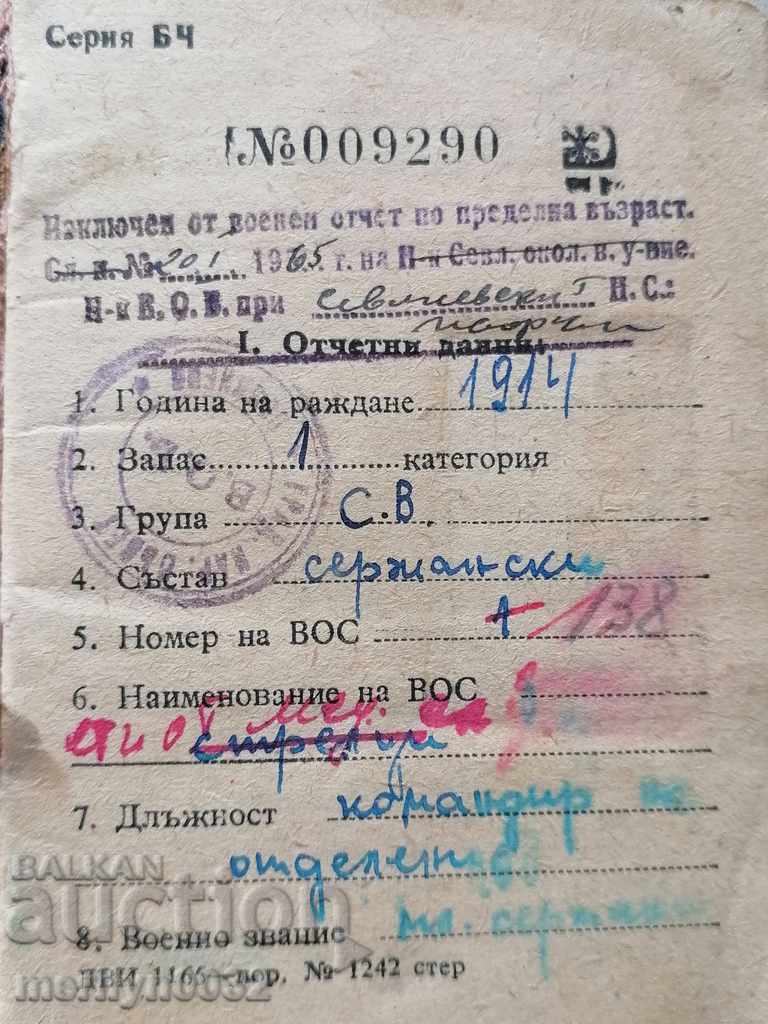 Серия БЧ
№ 009290
Изключен от военен отчет по пределна възраст.
Сл. к. № 201 1965 г. на Н-к Севл. окол. в. у-ние.
Н-к В. О. В. при севлиевски Н. С.:
I. Отчетни данни:
1. Година на раждане 1914
2. Запас 1 категория
3. Група С.В.
4. Състав сержански
5. Номер на ВОС 1 138
6. Наименование на ВОС
стрелци
7. Длъжност командир на
отделение
8. Военно звание мл. сержант
ДВИ 1166—пор. № 1242 стер
BALKAN
auction